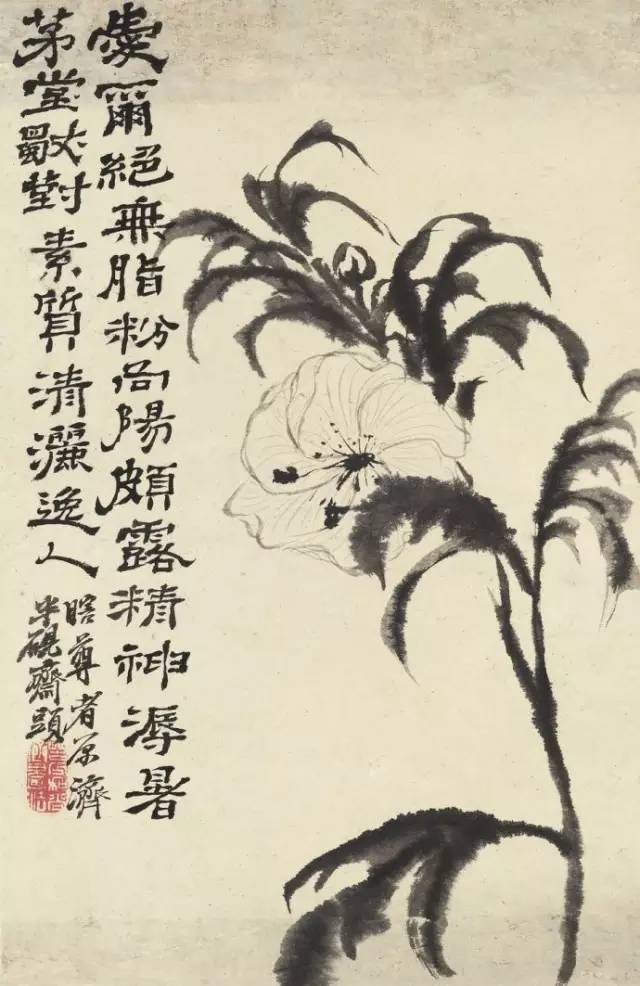 愛爾絕無脂粉向陽頗露精神溽暑
茅堂獨對素質清灑逸人
瞎尊者原濟
半硯齋題